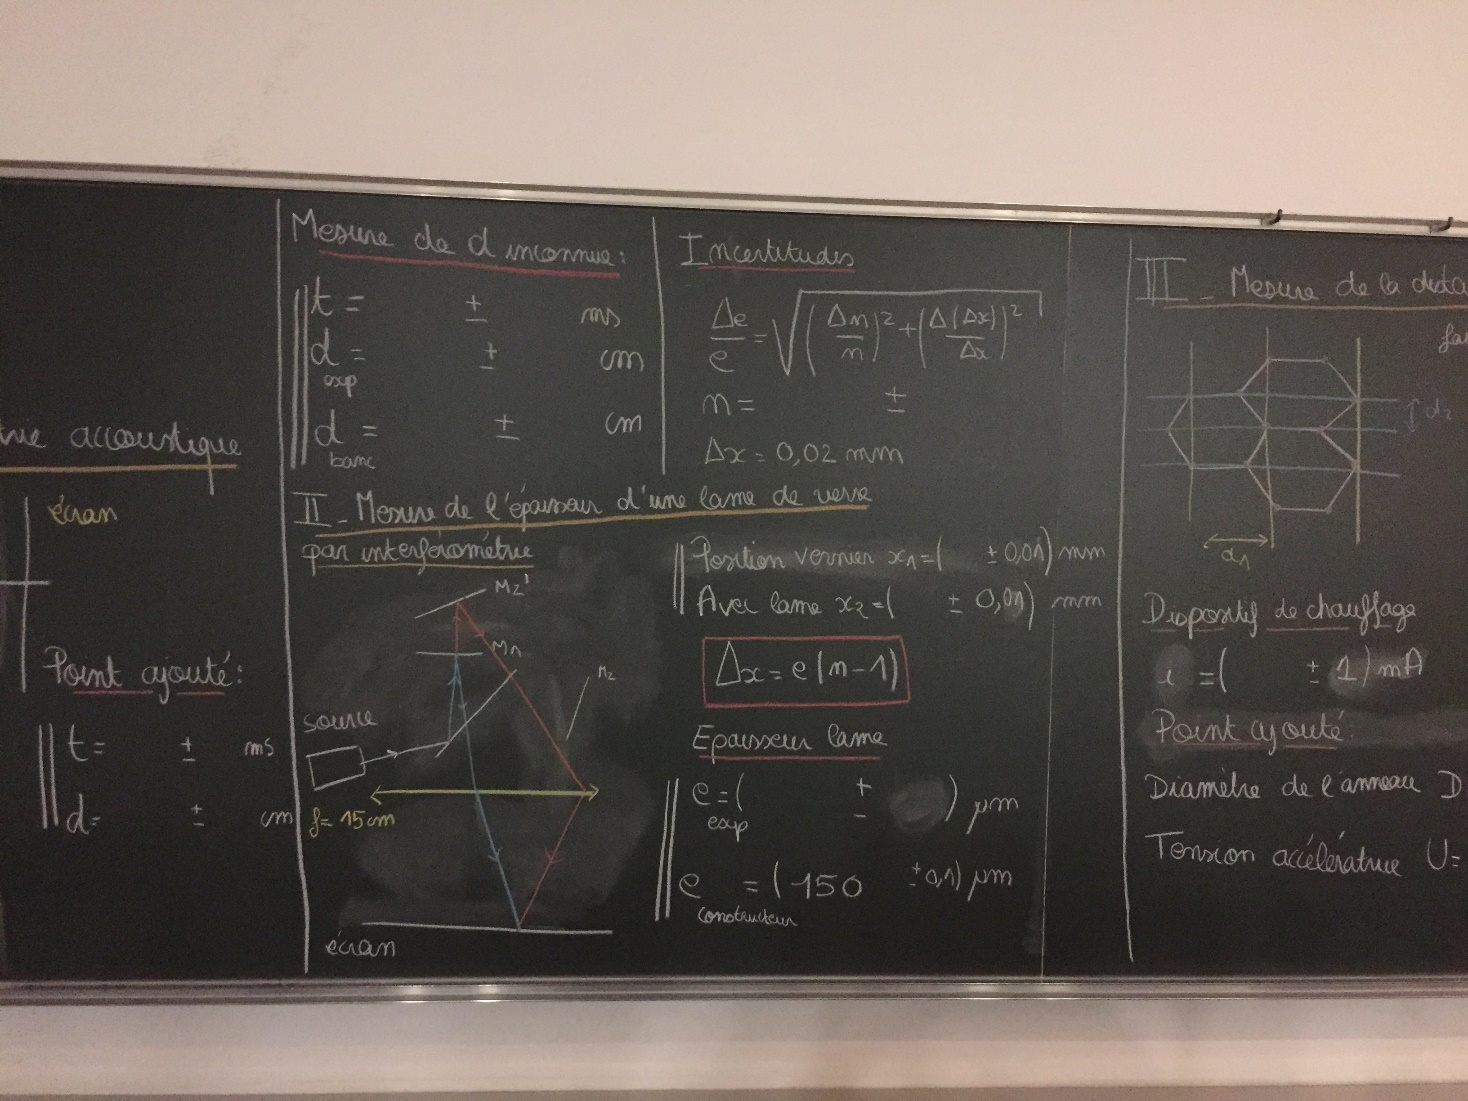 rie accoustique
écran
Point ajouté:
t= ± ms
d= ± cm
Mesure de d inconnue:
t= ± ms
d exp = ± cm
d banc = ± cm
Incertitudes
Δe/e = √((Δn/n)² + (Δ(Δx)/Δx)²)
n= ±
Δx = 0,02 mm
II - Mesure de l'épaisseur d'une lame de verre
par interférométrie
M2'
M1
M2
source
f= 15cm
écran
Position vernier x1=( ± 0,01) mm
Avec lame x2=( ± 0,01) mm
Δx = e(n-1)
Epaisseur lame
e exp =( ± ) μm
e constructeur = (150 ± 0,1) μm
III - Mesure de la dista
d2
d1
Dispositif de chauffage
i =( ± 1) mA
Point ajouté:
Diamètre de l'anneau D
Tension accélératrice U=